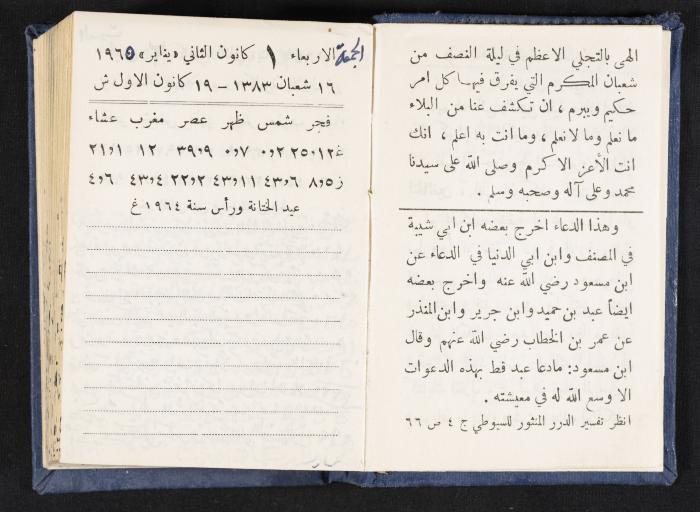 الهى بالتجلي الاعظم في ليلة النصف من
شعبان المكرم التي يفرق فيها كل امر
حكيم ويبرم ، ان تكشف عنا من البلاء
ما نعلم وما لا نعلم ، وما انت به اعلم ، انك
انت الأعز الاكرم وصلى الله على سيدنا
محمد وعلى آله وصحبه وسلم .
وهذا الدعاء اخرج بعضه ابن ابي شيبة
في المصنف وابن ابي الدنيا في الدعاء عن
ابن مسعود رضي الله عنه واخرج بعضه
ايضاً عبد بن حميد وابن جرير وابن المنذر
عن عمر بن الخطاب رضي الله عنهم وقال
ابن مسعود: مادعا عبد قط بهذه الدعوات
الا وسع الله له في معيشته .
انظر تفسير الدرر المنثور للسيوطي ج ٤ ص ٦٦
الجمعة الاربعاء ١ كانون الثاني «يناير» ١٩٦٥
١٦ شعبان ١٣٨٣ – ١٩ كانون الاول ش
فجر شمس ظهر عصر مغرب عشاء
غ ١٢و٢٥ ٢و٠ ٧و٠ ٩و٣٩ ١٢ ١و٢١
ز ٥و٨ ٦و٤٣ ١١و٤٣ ٢و٢٢ ٤و٤٣ ٦و٤
عيد الختانة ورأس سنة ١٩٦٤ غ